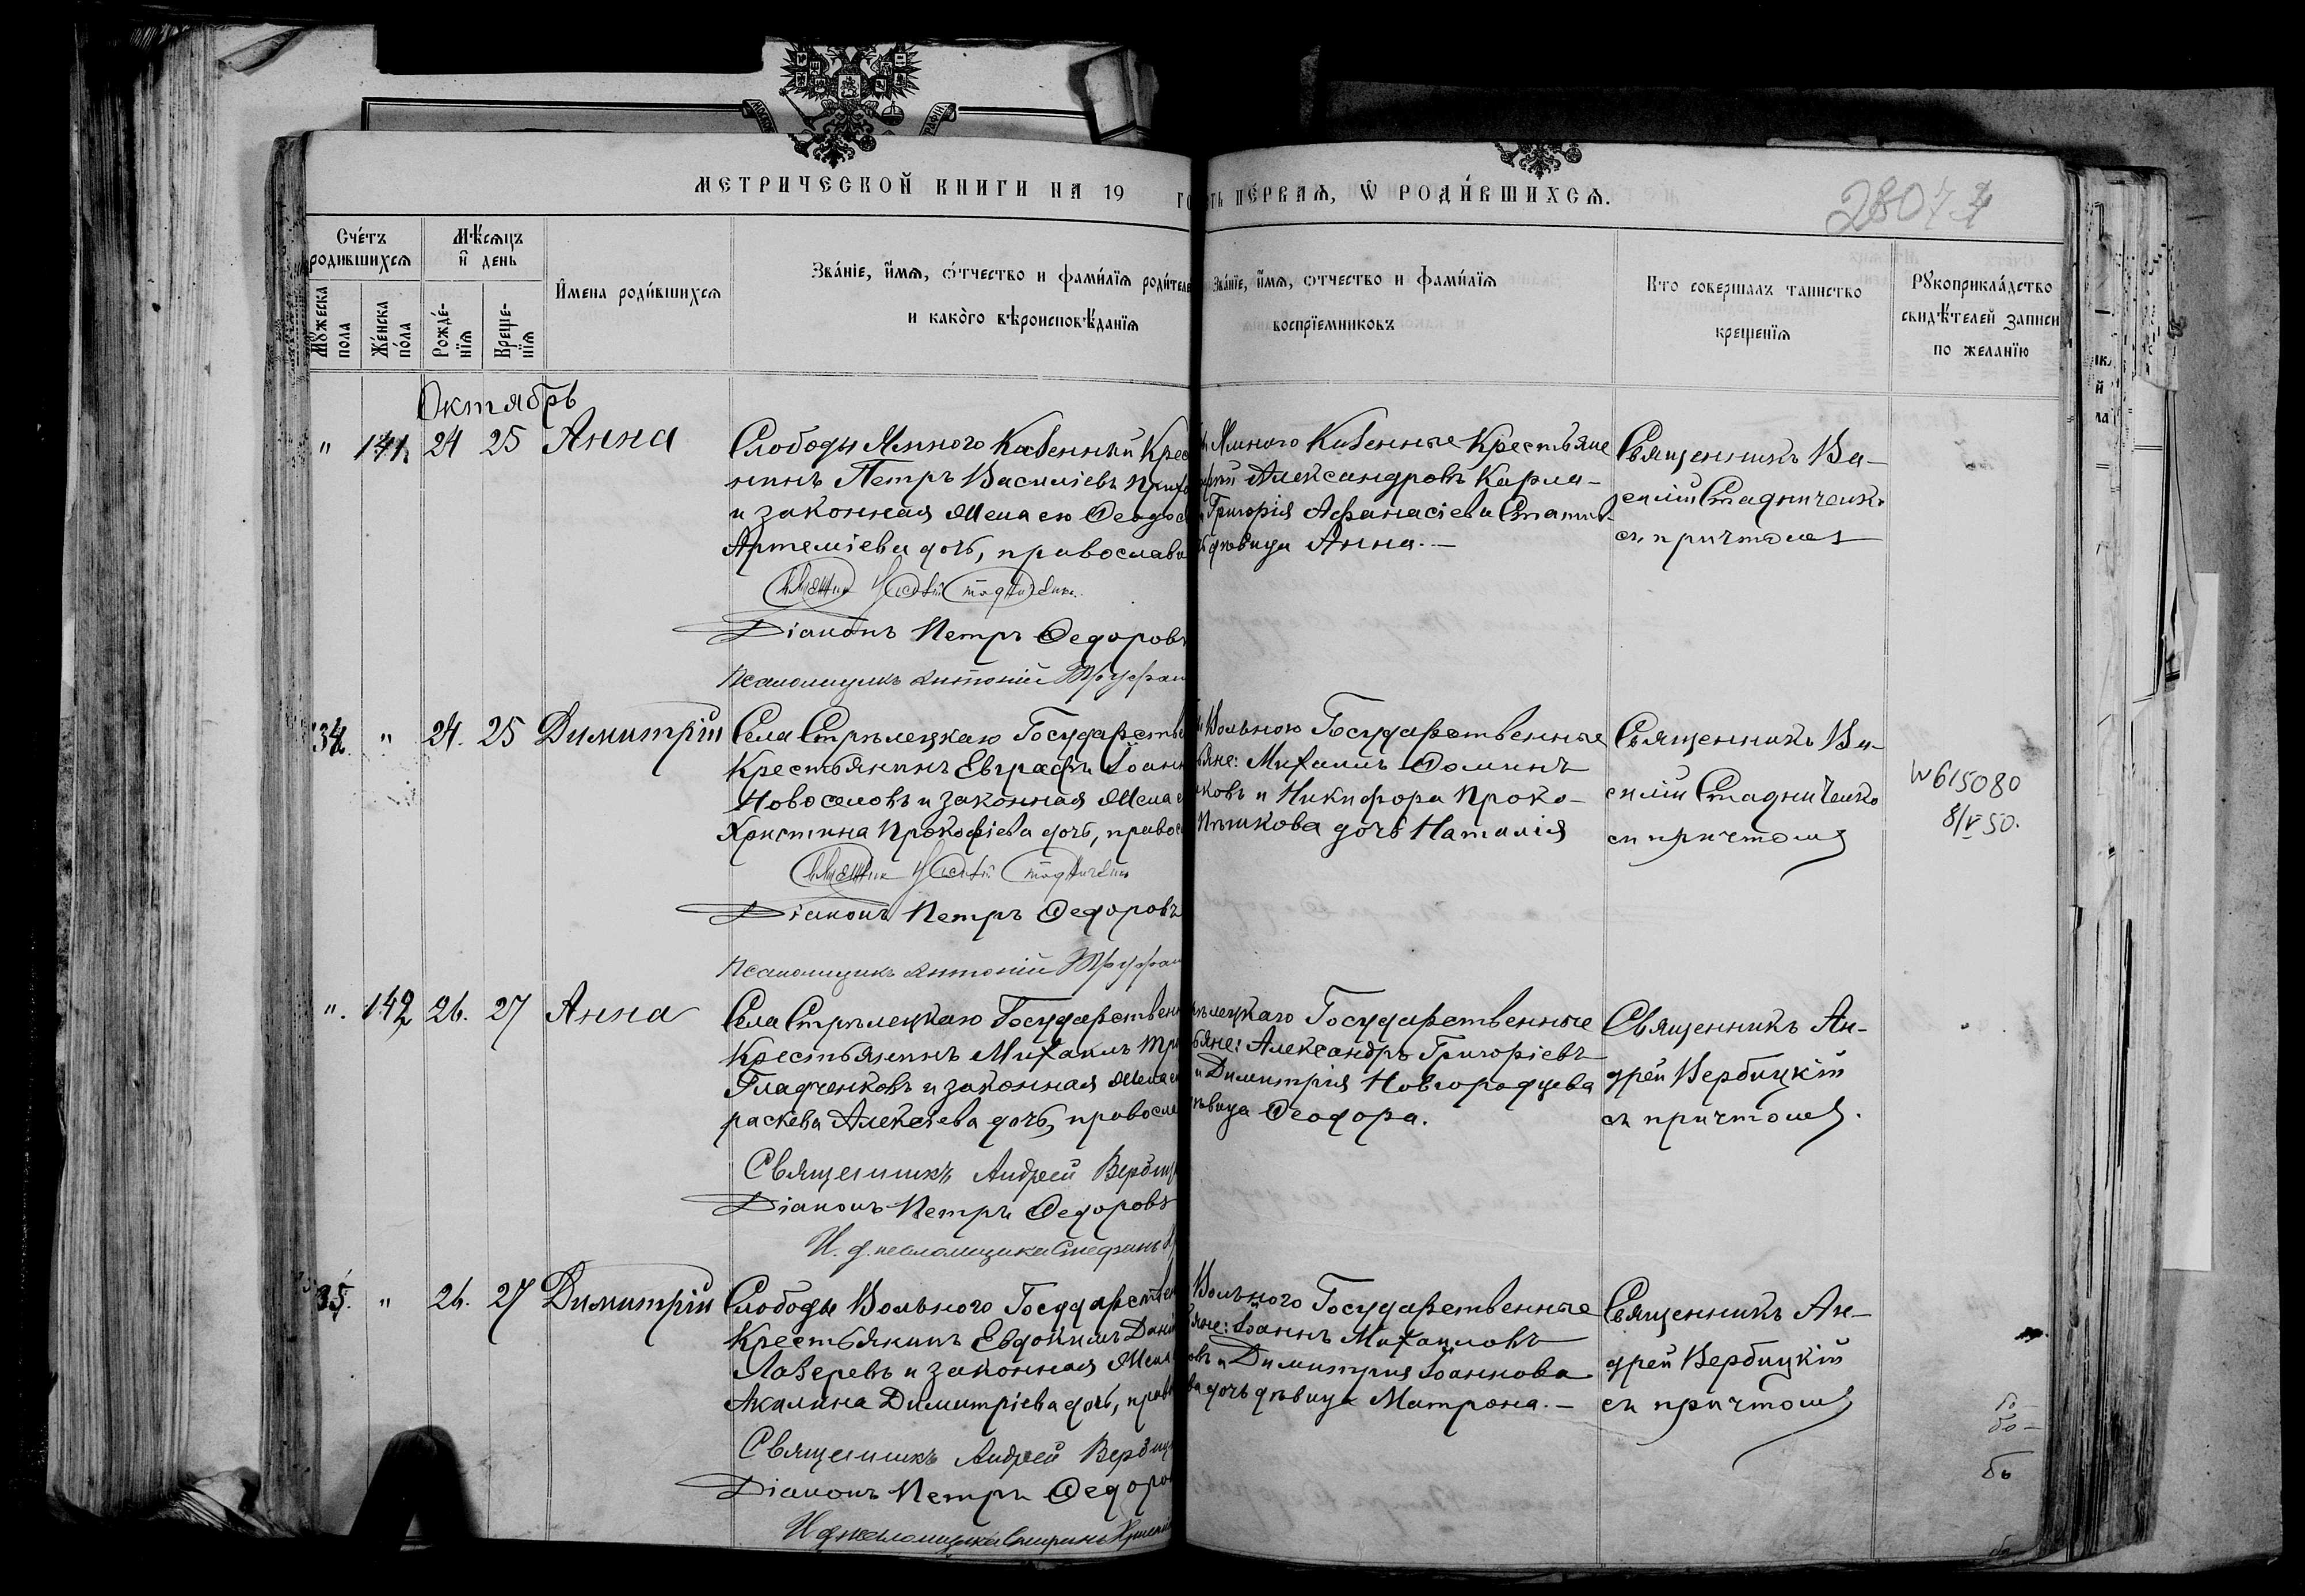 МЕТРИЧЕСКОЙ КНИГИ НА 19
ПЕ́РВАѦ, Ѿ РОДИ́ВШИХСѦ.
2807
Сче́тъ родившихсѧ
Мѣ́сѧцъ и день
И́мена роди́вшихсѧ
Зва́нїе, и́мѧ, ѻ́тчество и фами́лїѧ роди́теле
и како́го вѣроисповѣ́данїѧ
Зва́нїе, и́мѧ, ѻтчество и фами́лїѧ
воспрїемниковъ
Кто совершалъ таинство
крещенїѧ
Рꙋкоприкла́дство
свидѣ́телей записи
по желанїю
Мꙋжеска пола
Же́нска по́ла
Рожде́нїѧ
Креще́нїѧ
Октябрь
" 141 24 25 Анна
Слободы Ямного Казенный Крес
нинъ Петръ Василіевъ
и законная жена его Феодос
Артеміева дочь, православн
Діаконъ Петръ Федоровъ
Псаломщикъ Антоній Труфан
Ямного Казенные Крестьяне
Александровъ Карпа-
Григорія Афанасіева
дѣвица Анна.—
Священникъ Ва-
силій Стадниченко
съ причтомъ
134. " 24. 25 Димитрій
Села Стрѣлецкаго Государстве
Крестьянинъ Евграфъ Іоанн
Новоселовъ и законная жена е
Христина Прокофіева дочь, правос
Діаконъ Петръ Федоровъ
Псаломщикъ Антоній Труфан
Вольного Государственные
яне: Михаилъ Фоминъ
ковъ и Никифора Проко-
Пѣшкова дочь Наталія
Священникъ Ва-
силій Стадниченко
съ причтомъ
№615080
8/V 50.
". 142 26. 27 Анна
Села Стрѣлецкаго Государствен
Крестьянинъ Михаилъ
Гладченковъ и законная жена е
раскева Алексіева дочь, правосла
Священникъ Андрей Вербиц
Діаконъ Петръ Федоровъ
И. д. псаломщика Стефанъ
рѣлецкаго Государственные
яне: Александръ Григоріевъ
и Димитрія Новгородцева
ѣвица Феодора.
Священникъ Ан-
дрей Вербицкій
съ причтомъ.
135. " 26. 27 Димитрій
Слободы Вольного Государствен
Крестьянинъ Евдокимъ Дані
Лазеревъ и законная жена
Акилина Димитріева дочь, прав
Священникъ Андрей Вербиц
Діаконъ Петръ Федоров
И д псаломщика Стефанъ
Вольного Государственные
яне: Іоаннъ Михаиловъ
овъ и Димитрія Іоаннова
ва дочь дѣвица Матрона.—
Священникъ Ан-
дрей Вербицкій
съ причтомъ